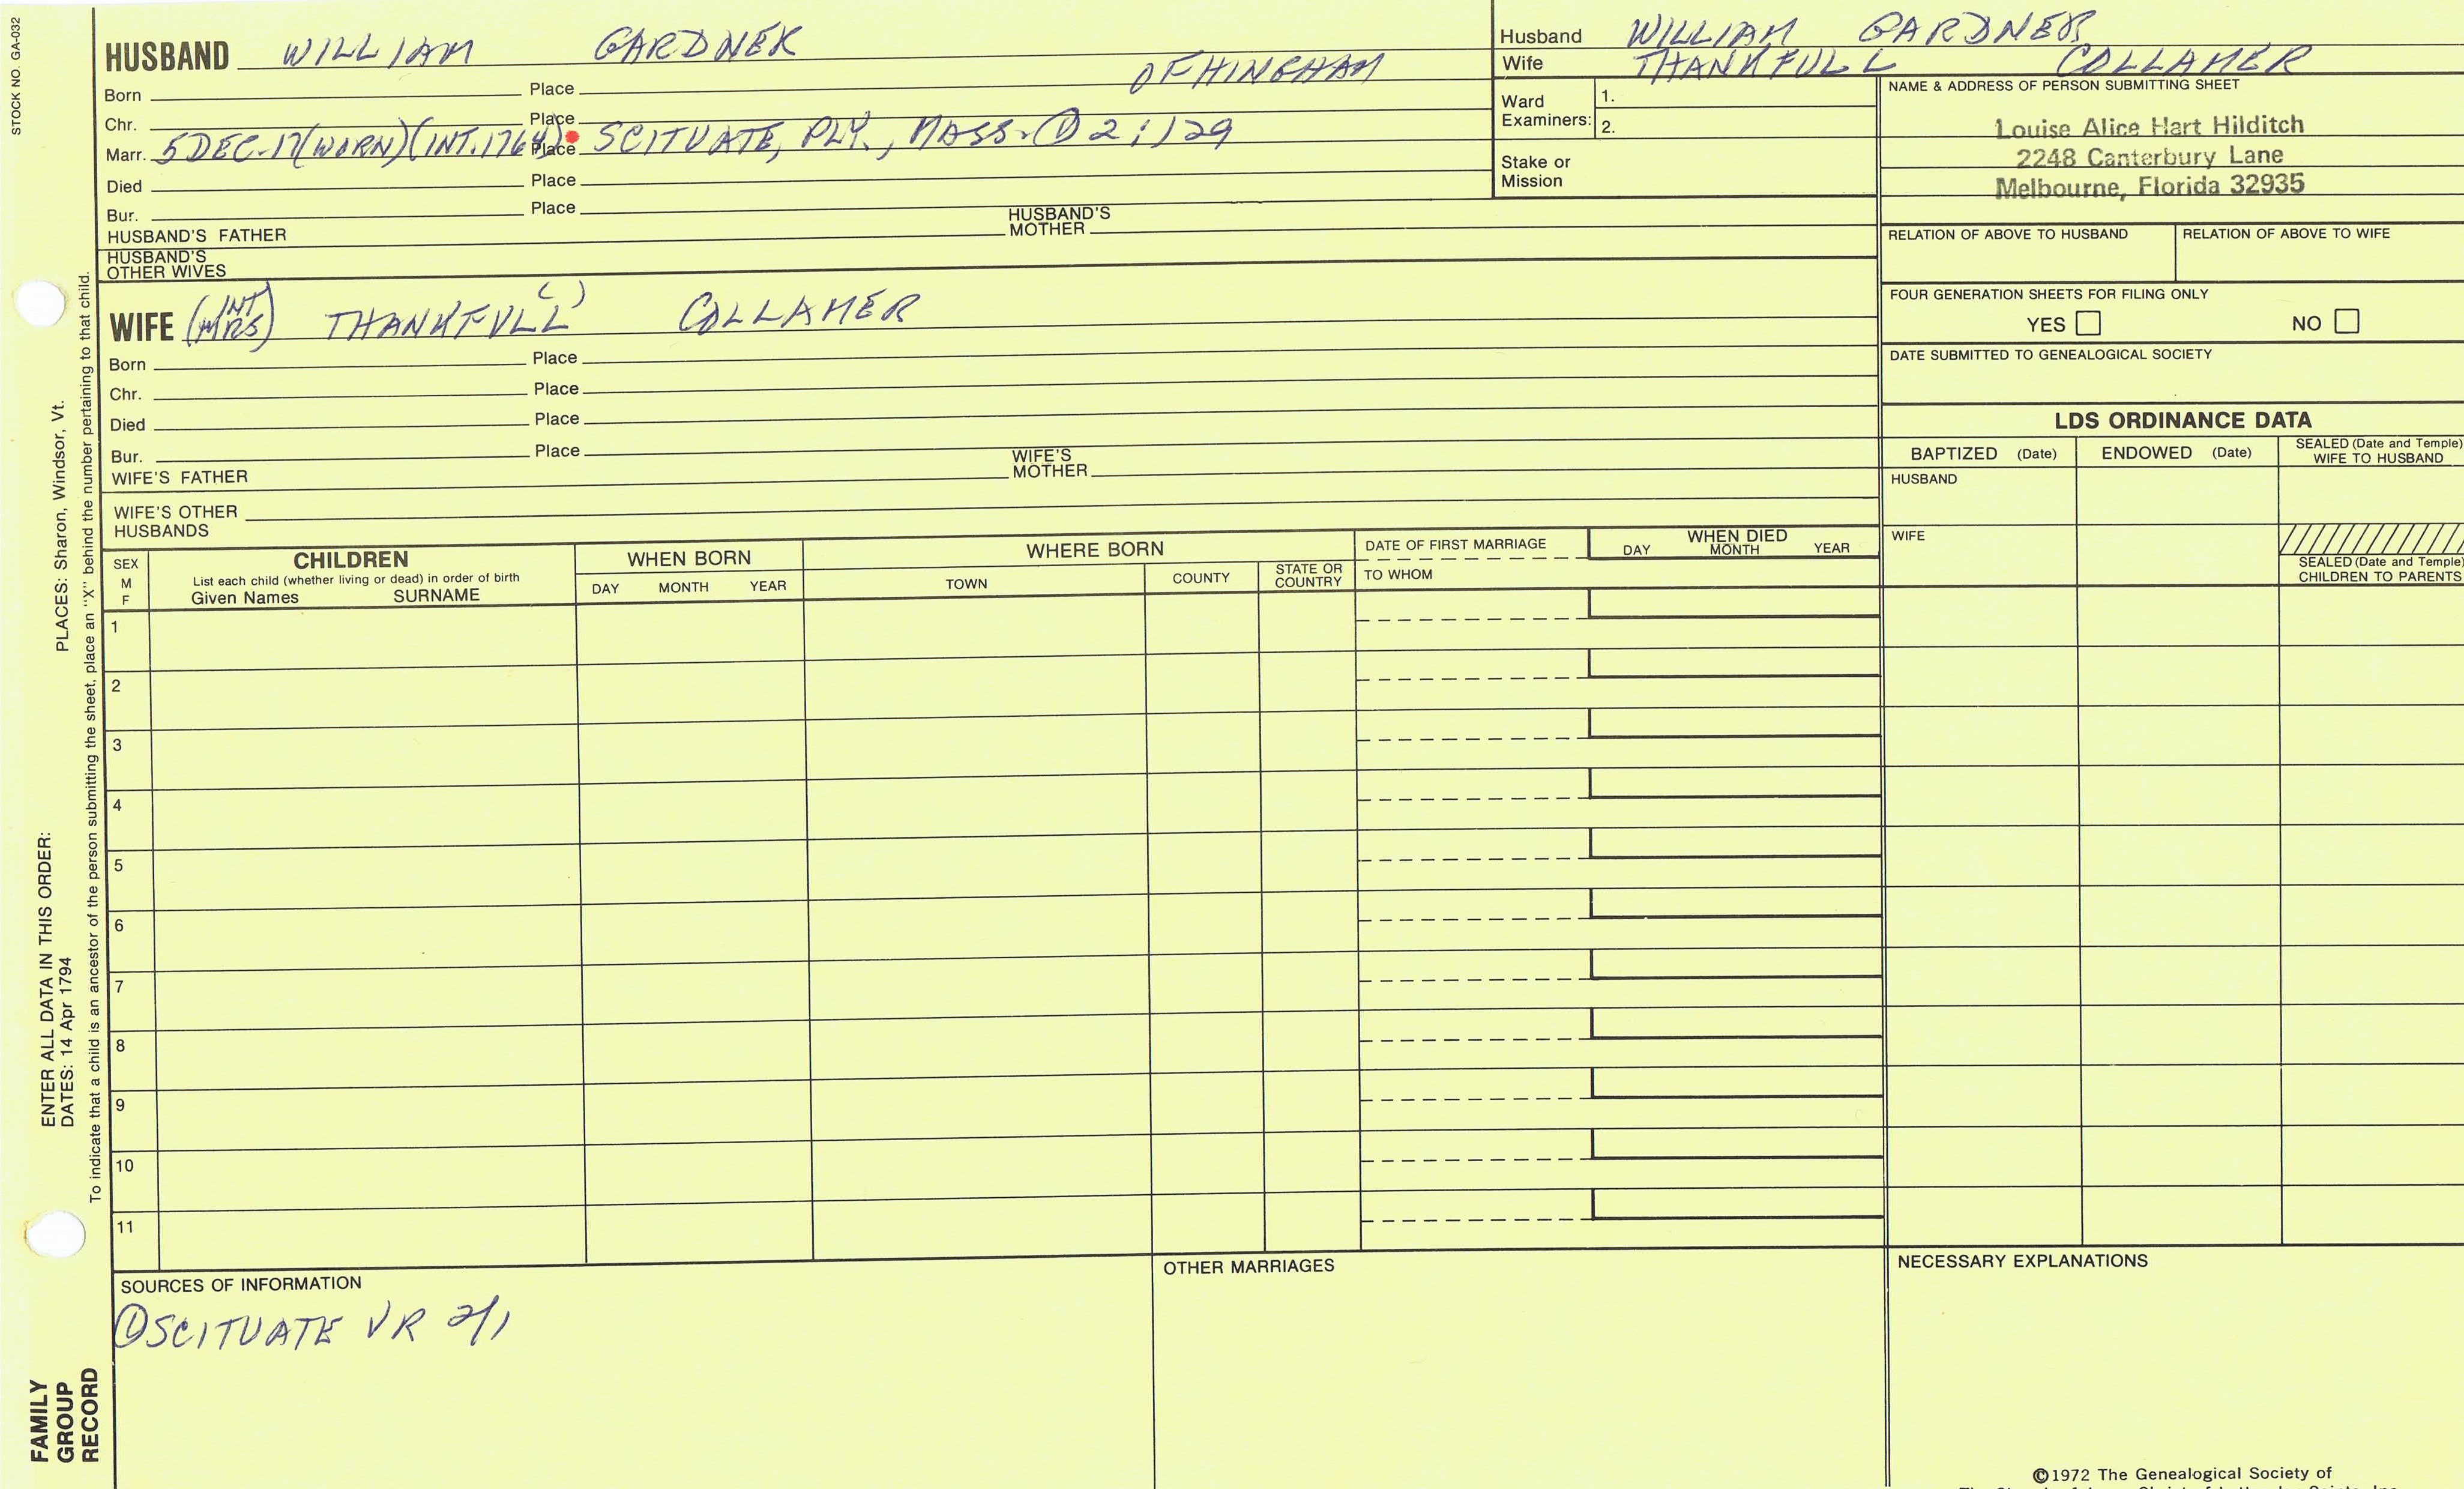 STOCK NO. GA-032
HUSBAND WILLIAM GARDNER
OF HINGHAM
Born Place
Chr. Place
Marr. 5 DEC. 17(WORN)(INT. 1764) Place SCITUATE, PLY., MASS. ① 2:129
Died Place
Bur. Place
HUSBAND'S FATHER HUSBAND'S MOTHER
HUSBAND'S OTHER WIVES
Husband WILLIAM GARDNER
Wife THANKFULL COLLAMER
Ward Examiners: 1.
2.
Stake or Mission
NAME & ADDRESS OF PERSON SUBMITTING SHEET
Louise Alice Hart Hilditch
2248 Canterbury Lane
Melbourne, Florida 32935
RELATION OF ABOVE TO HUSBAND RELATION OF ABOVE TO WIFE
FOUR GENERATION SHEETS FOR FILING ONLY
YES NO
DATE SUBMITTED TO GENEALOGICAL SOCIETY
WIFE (INT MRS) THANKFULL ( ) COLLAMER
Born Place
Chr. Place
Died Place
Bur. Place
WIFE'S FATHER WIFE'S MOTHER
WIFE'S OTHER HUSBANDS
LDS ORDINANCE DATA
BAPTIZED (Date) ENDOWED (Date) SEALED (Date and Temple) WIFE TO HUSBAND
HUSBAND
WIFE
SEALED (Date and Temple) CHILDREN TO PARENTS
SEX M F
CHILDREN
List each child (whether living or dead) in order of birth
Given Names SURNAME
WHEN BORN
DAY MONTH YEAR
WHERE BORN
TOWN COUNTY STATE OR COUNTRY
DATE OF FIRST MARRIAGE
TO WHOM
WHEN DIED
DAY MONTH YEAR
1
2
3
4
5
6
7
8
9
10
11
SOURCES OF INFORMATION
① SCITUATE VR 2/1
OTHER MARRIAGES
NECESSARY EXPLANATIONS
©1972 The Genealogical Society of
ENTER ALL DATA IN THIS ORDER:
DATES: 14 Apr 1794
PLACES: Sharon, Windsor, Vt.
To indicate that a child is an ancestor of the person submitting the sheet, place an "X" behind the number pertaining to that child.
FAMILY
GROUP
RECORD